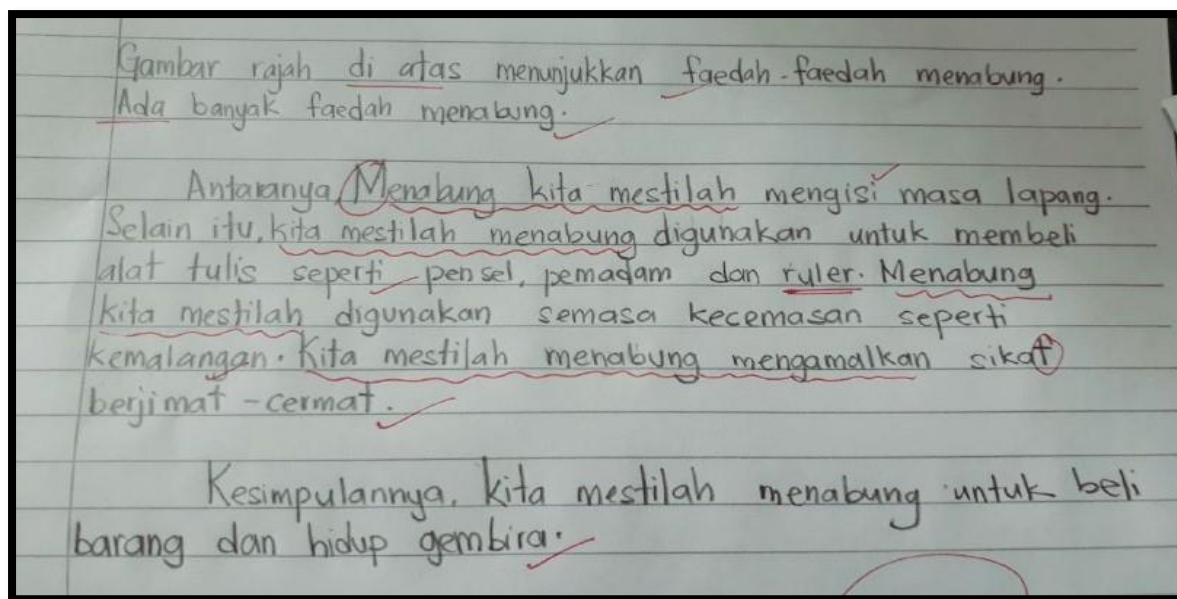 Gambar rajah di atas menunjukkan faedah-faedah menabung.
Ada banyak faedah menabung.
Antaranya, Menabung kita mestilah mengisi masa lapang.
Selain itu, kita mestilah menabung digunakan untuk membeli
alat tulis seperti pensel, pemadam dan ruler. Menabung
kita mestilah digunakan semasa kecemasan seperti
kemalangan. Kita mestilah menabung mengamalkan sikat
berjimat-cermat.
Kesimpulannya, kita mestilah menabung untuk beli
barang dan hidup gembira.